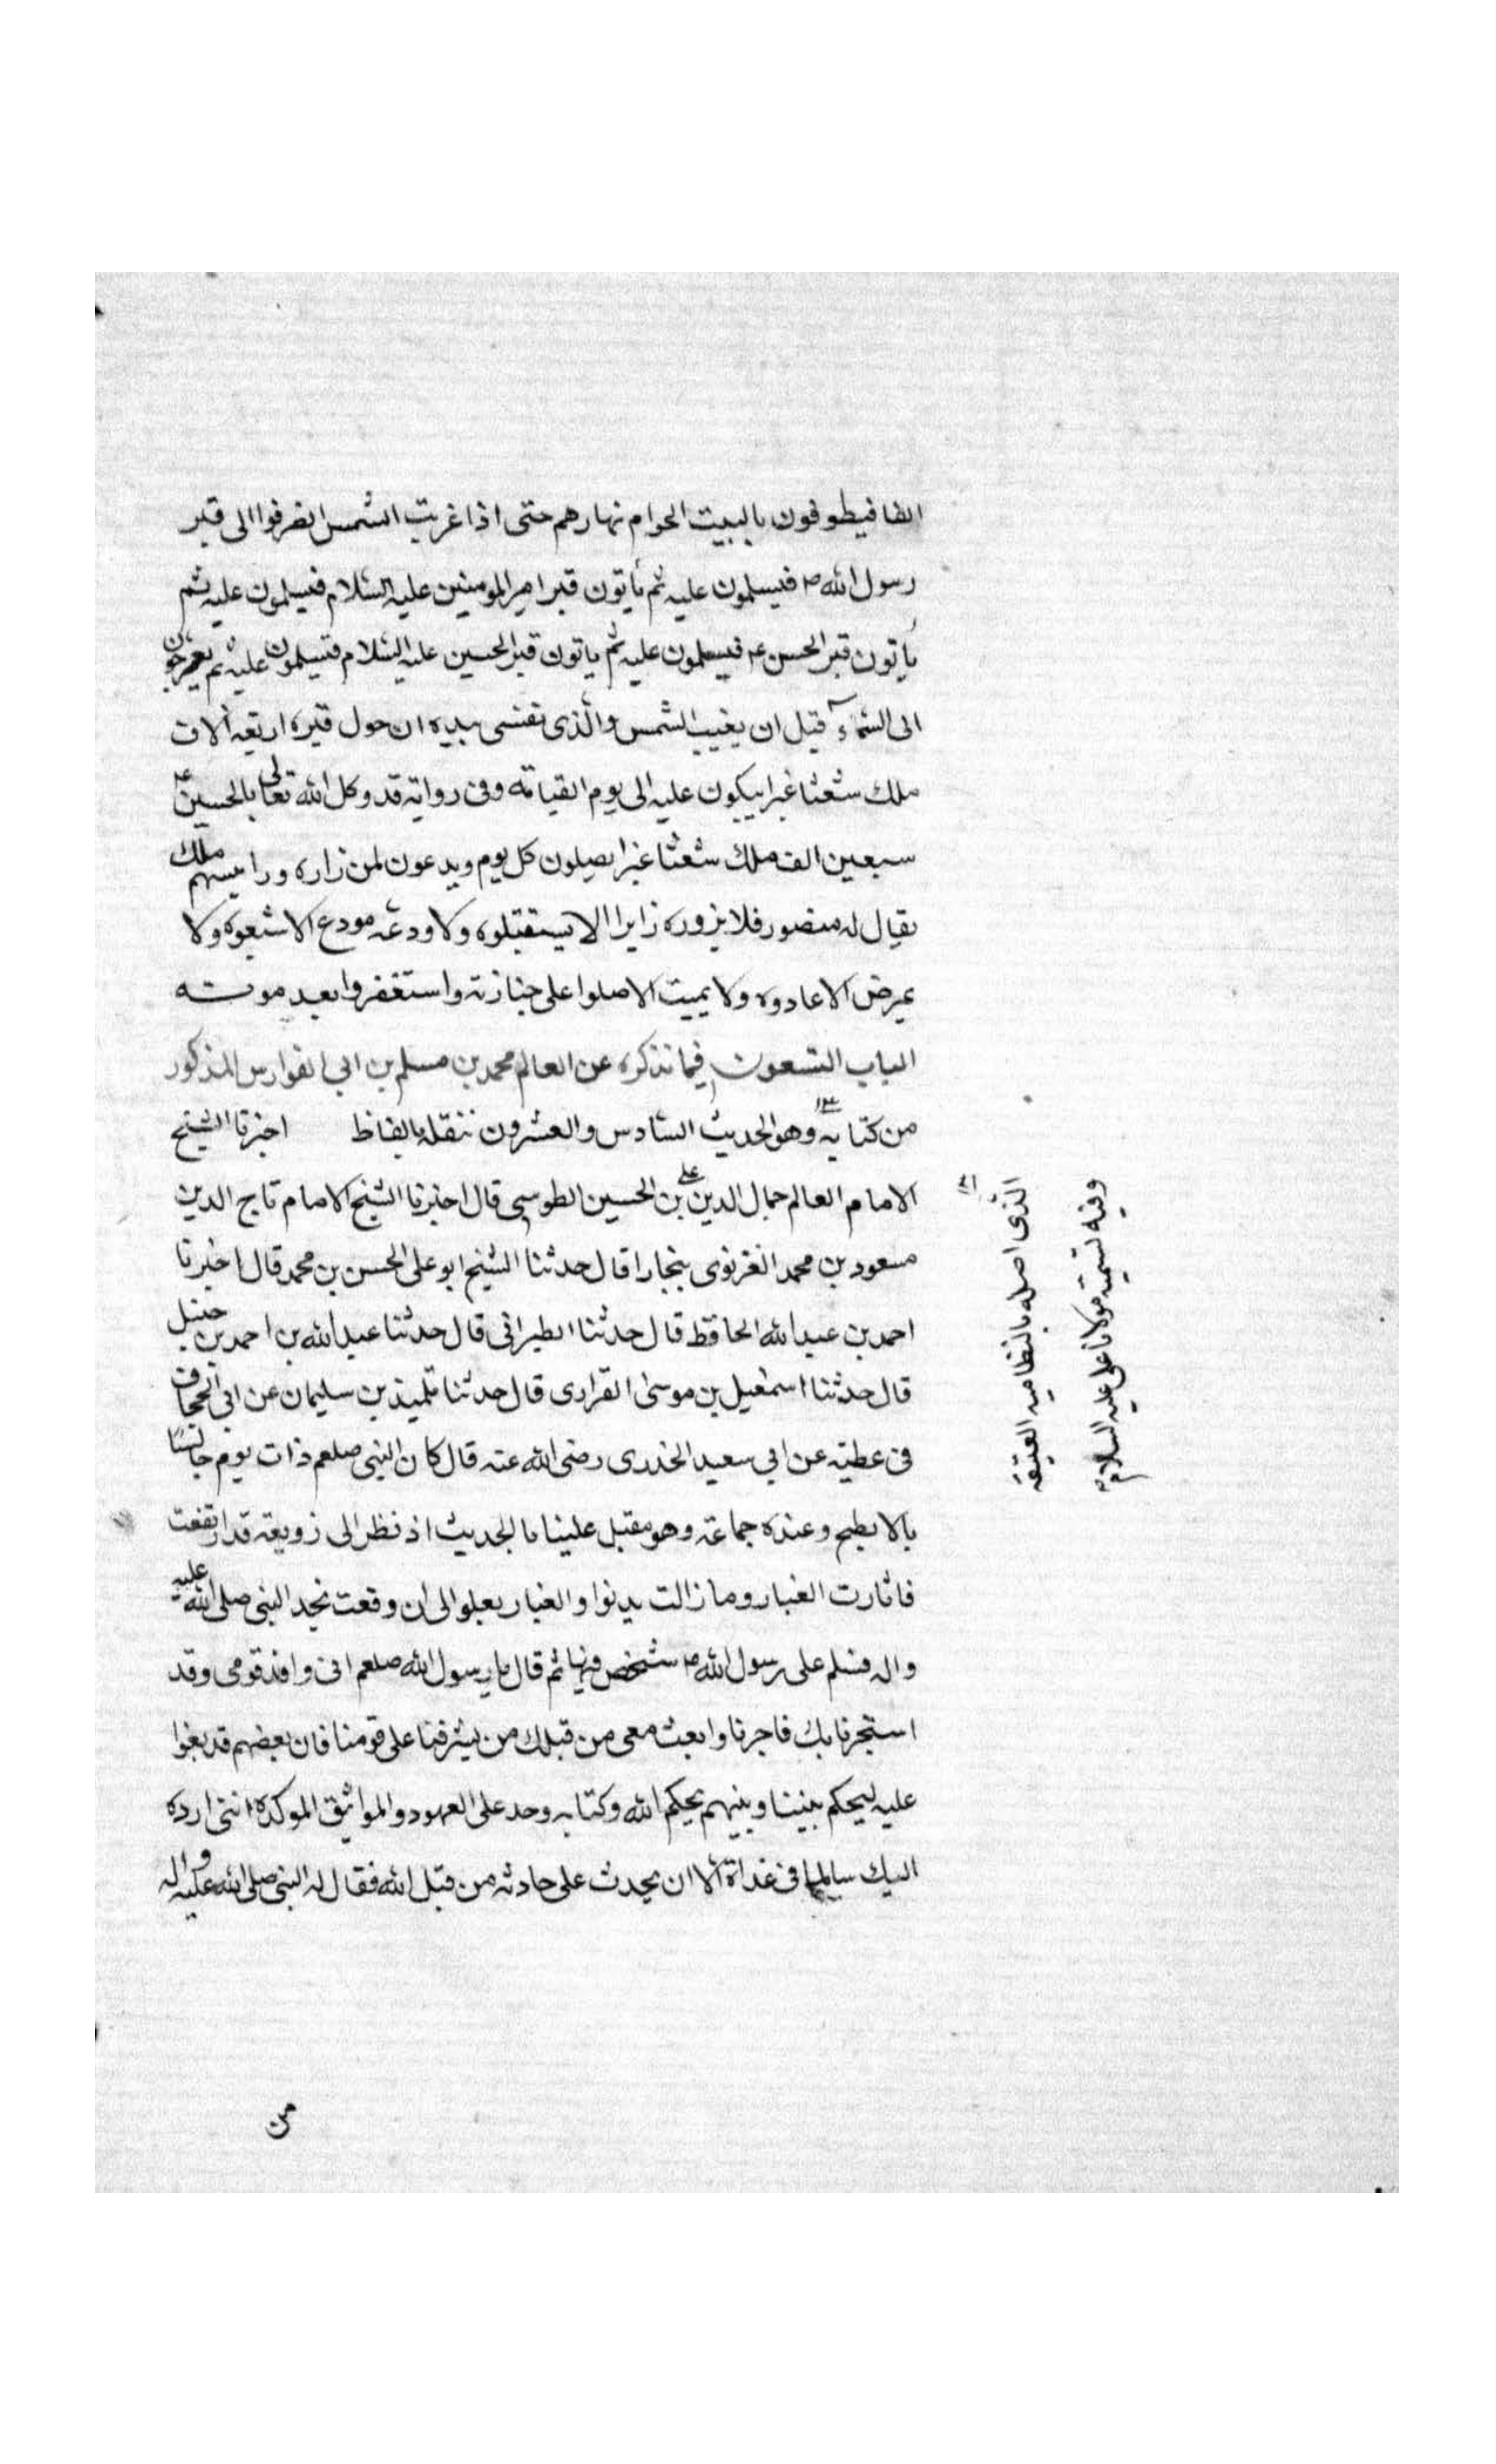 الفا فيطوفون بالبيت الحرام نهارهم حتى اذا غربت الشمس انصرفوا الى قبر
رسول الله ص فيسلمون عليه ثم يأتون قبر امير المومنين عليه السّلام فيسلمون عليه ثم
يأتون قبر الحسن ع فيسلمون عليه ثم ياتون قبر الحسين عليه السّلام فيسلمون عليه ثم يعرجون
الى السّمآء قبل ان يغيب الشمس والّذى نفسى بيده ان حول قبره اربعة آلاف
ملك شعثا غبرا يبكون عليه الى يوم القيامة وفى رواية قد وكل الله تعالى بالحسين ع
سبعين الف ملك شعثا غبرا يصلون كل يوم ويدعون لمن زاره ورايسهم ملك
يقال له منصور فلا يزوره زايرا الا يستقبلوه ولا ودعه مودع الا شيعوه ولا
يمرض الا عادوه ولا يميت الا صلوا على جنازته واستغفروا بعد موته
الباب التسعون فيما نذكره عن العالم محمد بن مسلم بن ابى الفوارس المذكور
من كتابه وهو الحديث السّادس والعشرون ننقله بالفاظ اخبرنا الشيخ
الامام العالم جمال الدين على بن الحسين الطوسى قال اخبرنا الشيخ الامام تاج الدين
مسعود بن محمد الغزنوى بنجارا قال حدثنا الشيخ ابو على الحسن بن محمد قال اخبرنا
احمد بن عبد الله الحافظ قال حدثنا الطبرانى قال حدثنا عبد الله بن احمد بن حنبل
قال حدثنا اسمعيل بن موسى القرارى قال حدثنا تلميذ بن سليمان عن ابى الجحاف
فى عطيه عن ابى سعيد الخدرى رضى الله عنه قال كان النبى صلعم ذات يوم جالسًا
بالابطح وعنده جماعة وهو مقبل علينا بالحديث اذ نظر الى زوبعة قد ارتفعت
فاثارت الغبار وما زالت يدنوا والغبار يعلوا الى ان وقعت نحد النبى صلى الله عليه
واله فسلم على رسول الله ص شخص فيها ثم قال يا رسول الله صلعم انى وافد قومى وقد
استجرنا بك فاجرنا وابعث معى من قبلك من يشرفنا على قومنا فان بعضهم قد بغوا
عليه ليحكم بيننا وبينهم بحكم الله وكتابه وحد على العهود والمواثيق الموكده اننى ارده
اليك سالما فى غداة الا ان يحدث على حادثه من قبل الله فقال له النبى صلى الله عليه واله
من
الّذى اصله بالنظاميه العتيقه
وفيه تسميته مولانا على عليه السلام